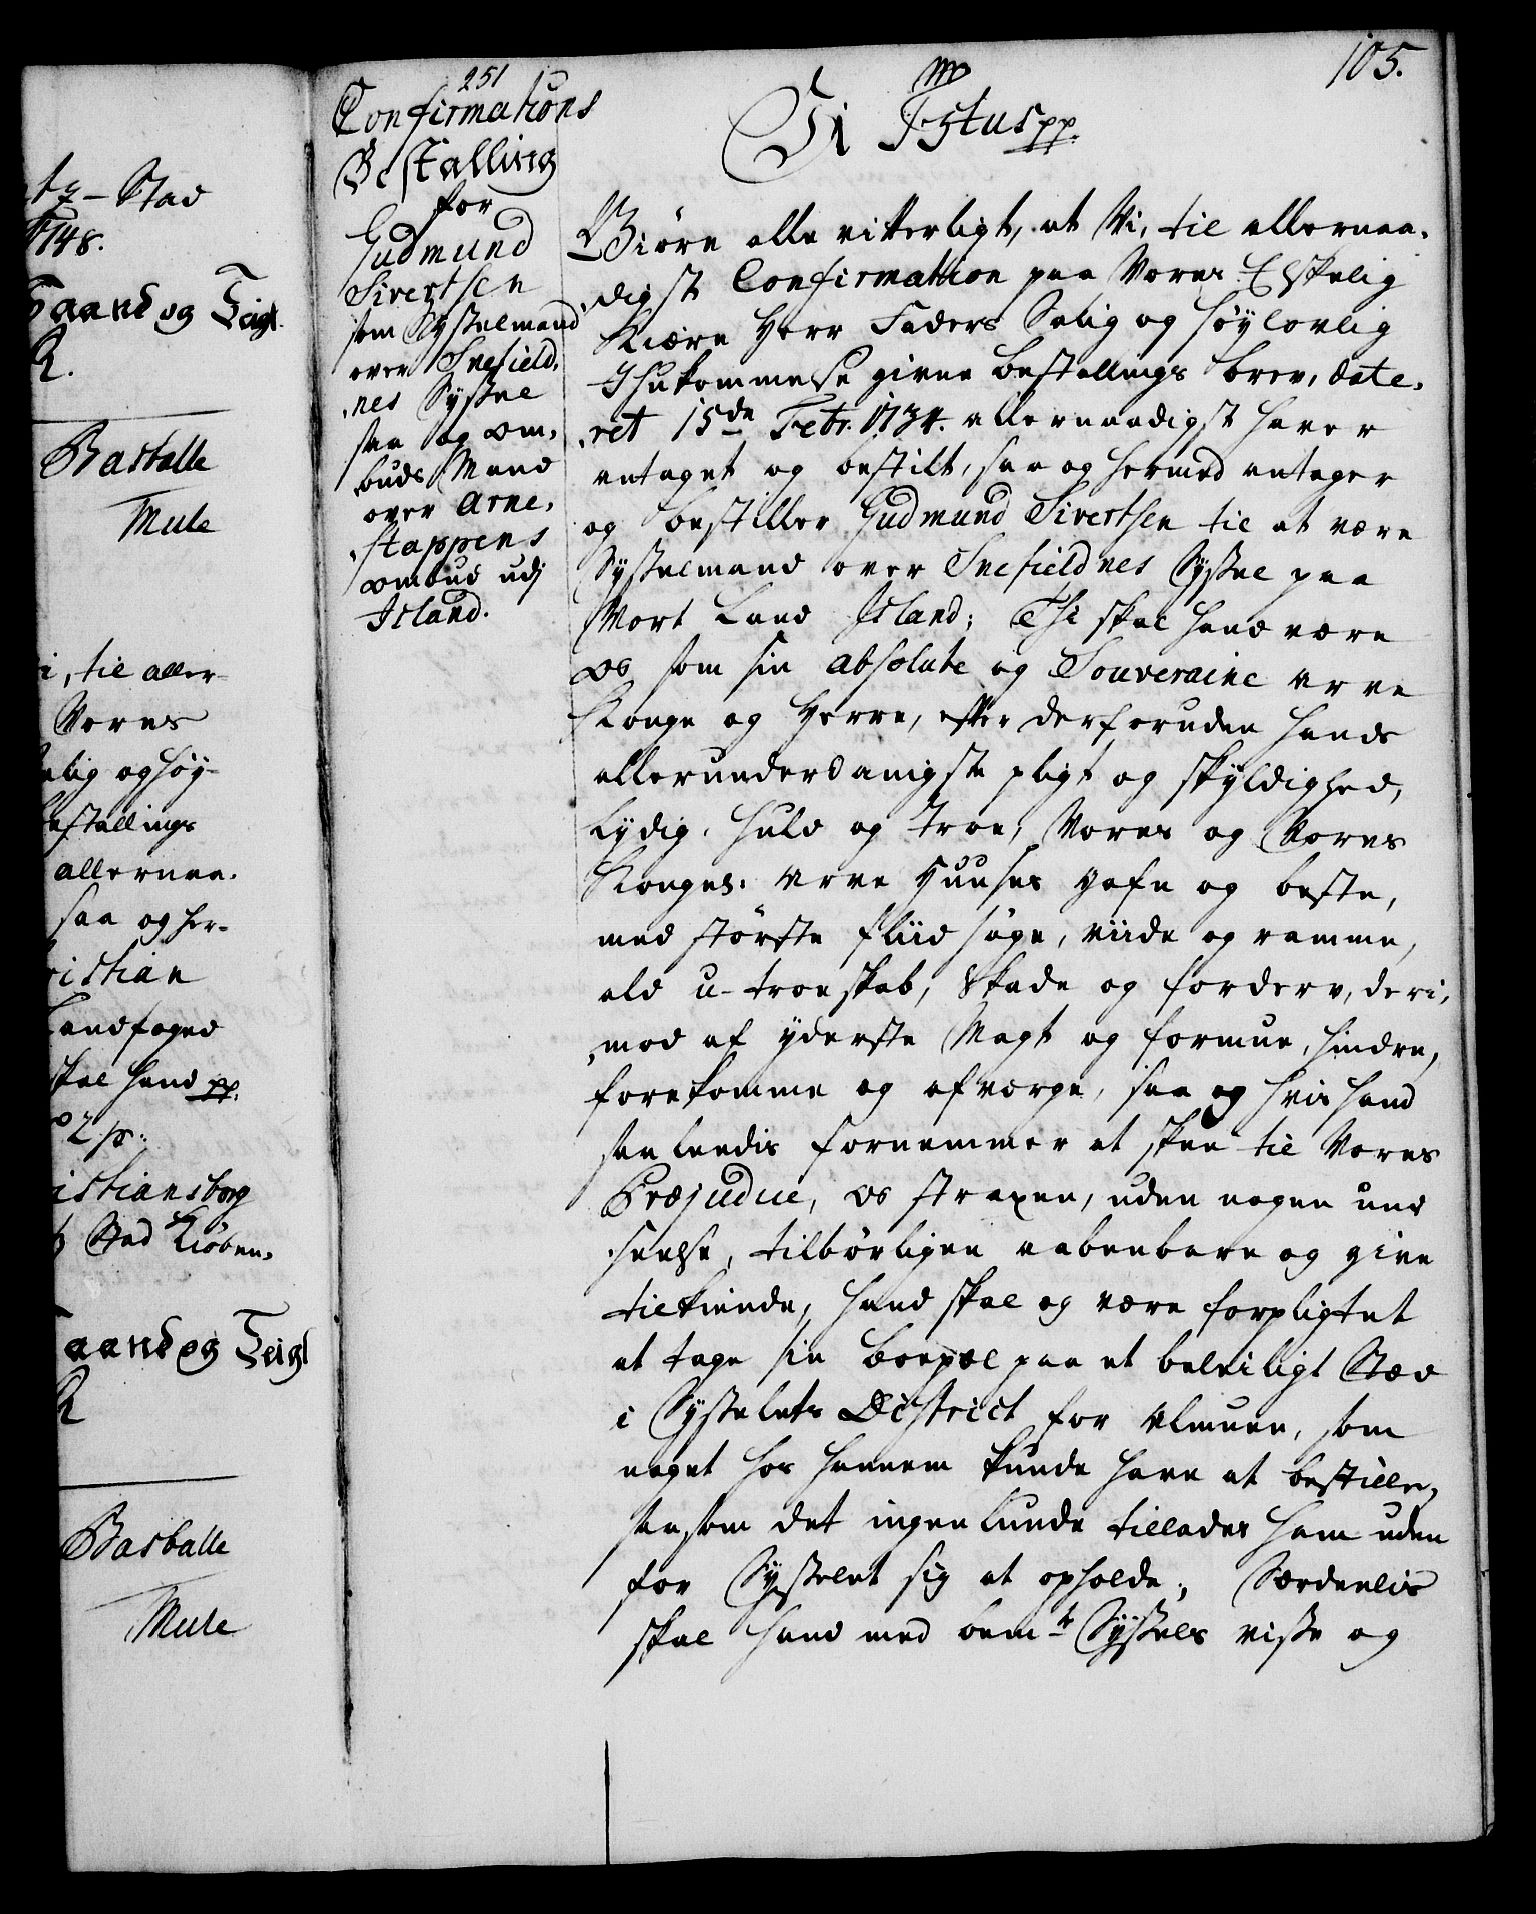 tz-Stad
1748.
Haand og Seigl.
R.
Bartalle
Mule
i, til aller-
Vores
elig og høy-
Bestallings
allernaa-
saa og her-
ristian
Landfoged
skal hand pp.
2 β:
istiansborg
Stad Kiøben-
Haand og Seigl
R
Bartalle
Mule
105.
251
Confirmations
Bestalling
for
Gudmund
Sivertsen
som Sysselmand
over Snefield-
nes Syssel
saa og Om-
buds Mand
over Arne-
stappens
Ombud udj
Island.
Vi F5tus pp.
Giøre alle vitterligt, at Vi, til allernaa-
digst Confirmation paa Vores Elskelig
Kiære Herr Faders Salig og høylovlig
Ihukommelse givne Bestallings brev, date-
ret 15de Febr. 1734. allernaadigst haver
antaget og bestilt, saa og hermed antager
og bestiller Gudmund Sivertsen til at være
Sysselmand over Snefieldnes Syssel paa
Vort Land Island; Thi skal hand være
os som sin absolute og Souveraine Arve
Konge og Herre, efter derforuden hands
allerunderdanigste pligt og skyldighed,
Lydig, huld og troe, Vores og Vores
Konges. Arve Huuses gafn og beste,
med største fliid søge, viide og ramme,
ald u-troeskab, skade og forderv, deri-
mod af yderste Magt og formue, hindre,
forekomme og afværge, saa og hvis hand
saaledis fornemmer at skee til Vores
Præjudice, os straxen, uden nogen und
seelse, tilbørligen aabenbare og give
tilkiende, Hand skal og være forpligtet
at tage sin boepæl paa et beleiligt Stæd
i Syssels District for Almuen, som
noget hos hannem kunde have at bestille,
saasom det ingenlunde tillades ham uden
for Sysselet sig at opholde; Særdeelis
skal hand med bemte Syssels visse og